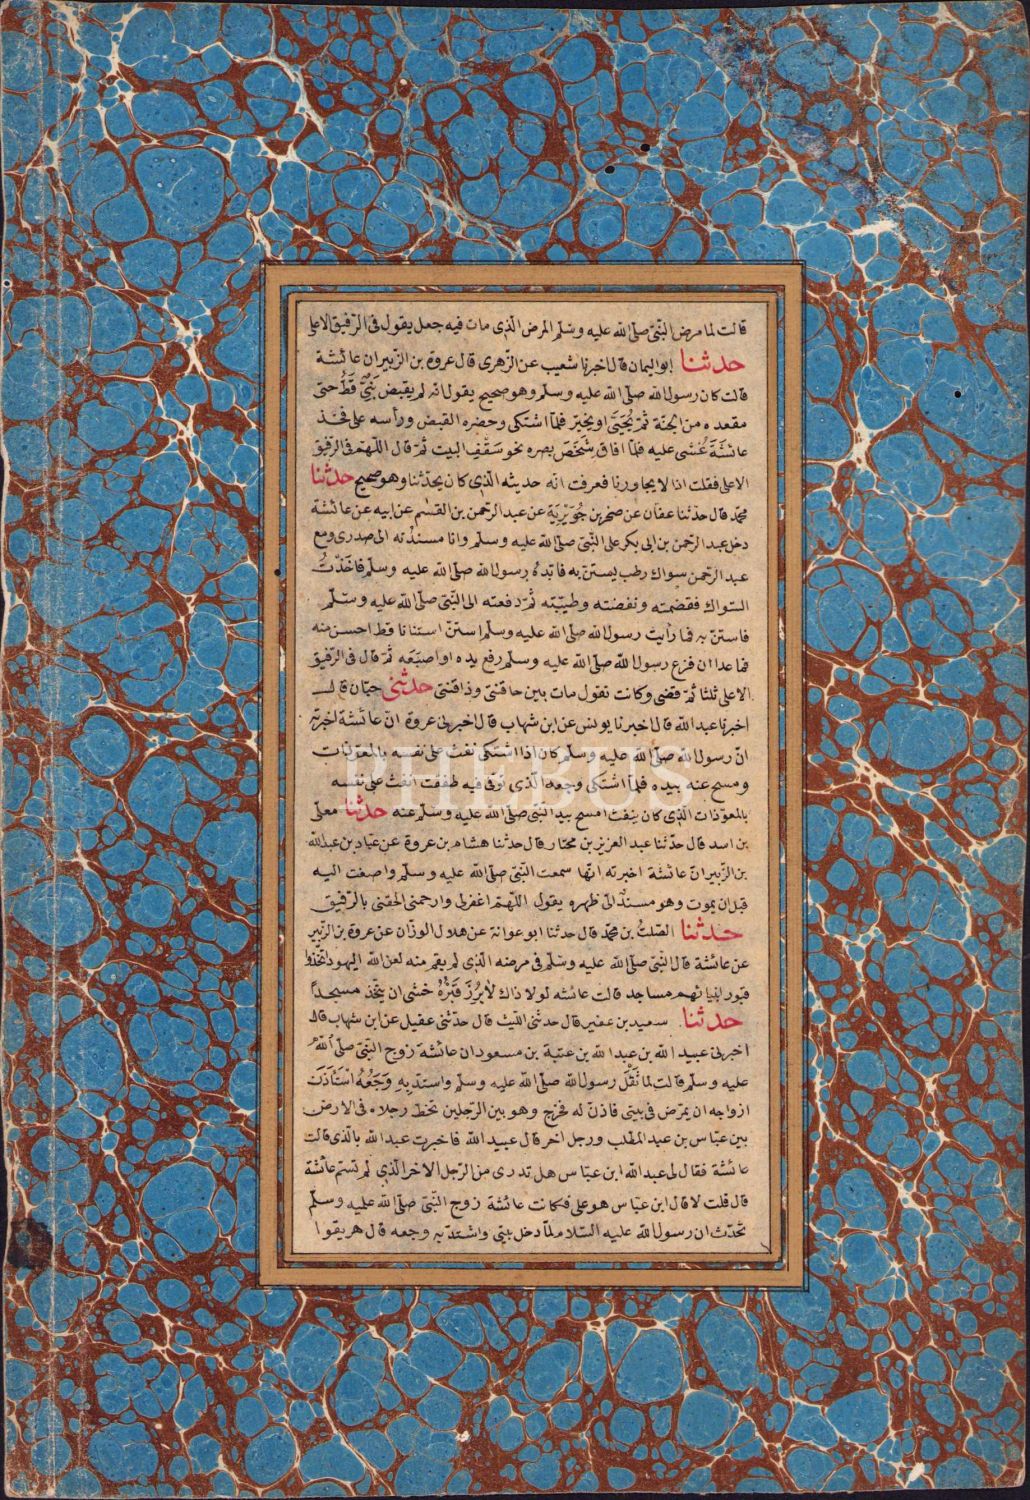 قالت لما مرض النبىّ صلّى الله عليه وسلّم المرض الّذى مات فيه جعل يقول فى الرّفيق الاعلى
حدثنا ابو اليمان قال اخبرنا شعيب عن الزّهرى قال عروة بن الزّبير ان عائشة
قالت كان رسول الله صلّى الله عليه وسلّم وهو صحيح يقول انّه لم يقبض نبىّ قطّ حتى
مقعده من الجنّة ثمّ يُحيّى او يخيّر فلمّا اشتكى وحضره القبض ورأسه على فخذ
عائشَةَ غُشى عليه فلمّا افاق شَخَصَ بصره نحو سَقْف البيت ثمّ قال اللّهمّ فى الرّفيق
الاعلى فقلت اذا لا يجاورنا فعرفت انه حديثه الّذى كان يحدّثنا وهو صحيح حدثنا
محمّد قال حدّثنا عفان عن صخر بن جُوَيْرِيَة عن عبد الرّحمن بن القسم عن ابيه عن عائشة
دخل عبد الرّحمن بن ابى بكر على النّبىّ صلّى الله عليه وسلّم وانا مسندته الى صدرى ومع
عبد الرّحمن سواك رطب يستنّ به فابدّه رسول الله صلّى الله عليه وسلّم فاخذتُ
السّواك فقضمته ونفضته وطيّبته ثمّ دفعته الى النّبىّ صلّى الله عليه وسلّم
فاستنّ به فما رأيت رسول الله صلّى الله عليه وسلّم استنّ استنانا قط احسن منه
فما عدا ان فرغ رسول الله صلّى الله عليه وسلّم رفع يده او اصبَعَه ثمّ قال فى الرّفيق
الاعلى ثلثا ثمّ قضى وكانت تقول مات بين حاقنتى وذاقنتى حدثنى حبّان قال
اخبرنا عبد الله قال اخبرنا يونس عن ابن شهاب قال اخبرنى عروة انّ عائشة اخبرته
انّ رسول الله صلّى الله عليه وسلّم كان اذا اشتكى نفث على نفسه بالمعوّذات
ومسح عنه بيده فلمّا اشتكى وجعه الّذى توفّى فيه طفقت انفث على نفسه
بالمعوّذات الّذى كان ينفث امسح بيد النّبىّ صلّى الله عليه وسلّم عنه حدثنا معلّى
بن اسد قال حدّثنا عبد العزيز بن مختار قال حدّثنا هشام بن عروة عن عبّاد بن عبد الله
بن الزّبير انّ عائشة اخبرته انّها سمعت النّبىّ صلّى الله عليه وسلّم واصغت اليه
قبل ان يموت وهو مسند الىّ ظهره يقول اللّهمّ اغفرلى وارحمنى الحقنى بالرّفيق
حدثنا الصّلتُ بن محمّد قال حدثنا ابو عوانة عن هلال الوزان عن عروة بن الزّبير
عن عائشة قال النّبى صلّى الله عليه وسلّم فى مرضه الّذى لم يقم منه لعن الله اليهود اتّخذوا
قبور انبيائهم مساجد قالت عائشه لولا ذاك لَاُبْرُزَ قَبْرُهُ خشى ان يتّخذ مسجداً
حدثنا سعيد بن عفير قال حدّثنى اللّيث قال حدّثنى عقيل عن ابن شهاب قال
اخبرنى عبيد الله بن عبد الله بن عتبة بن مسعود ان عائشة زوج النّبىّ صلّى اللهُ
عليه وسلّم قالت لما ثقل رسول الله صلّى الله عليه وسلّم واستدّ بِهِ وَجَعُهُ استَأذَنَ
ازواجه ان يمرّض فى بيتى فاذنّ له فخرج وهو بين الرّجلين تخط رجلاه فى الارض
بين عبّاس بن عبد المطلب ورجل اخر قال عبيد الله فاخبرت عبد الله بالّذى قالت
عائشة فقال لى عبد الله ابن عبّاس هل تدرى من الرّجل الاخر الّذى لم تسمّ عائشة
قال قلت لا قال ابن عبّاس هو على فكانت عائشة زوج النّبىّ صلّى الله عليه وسلّم
تحدّث ان رسول الله عليه السّلام لمّا دخل بيتى واشتدّ به وجعه قال هريقوا
PHEBUS